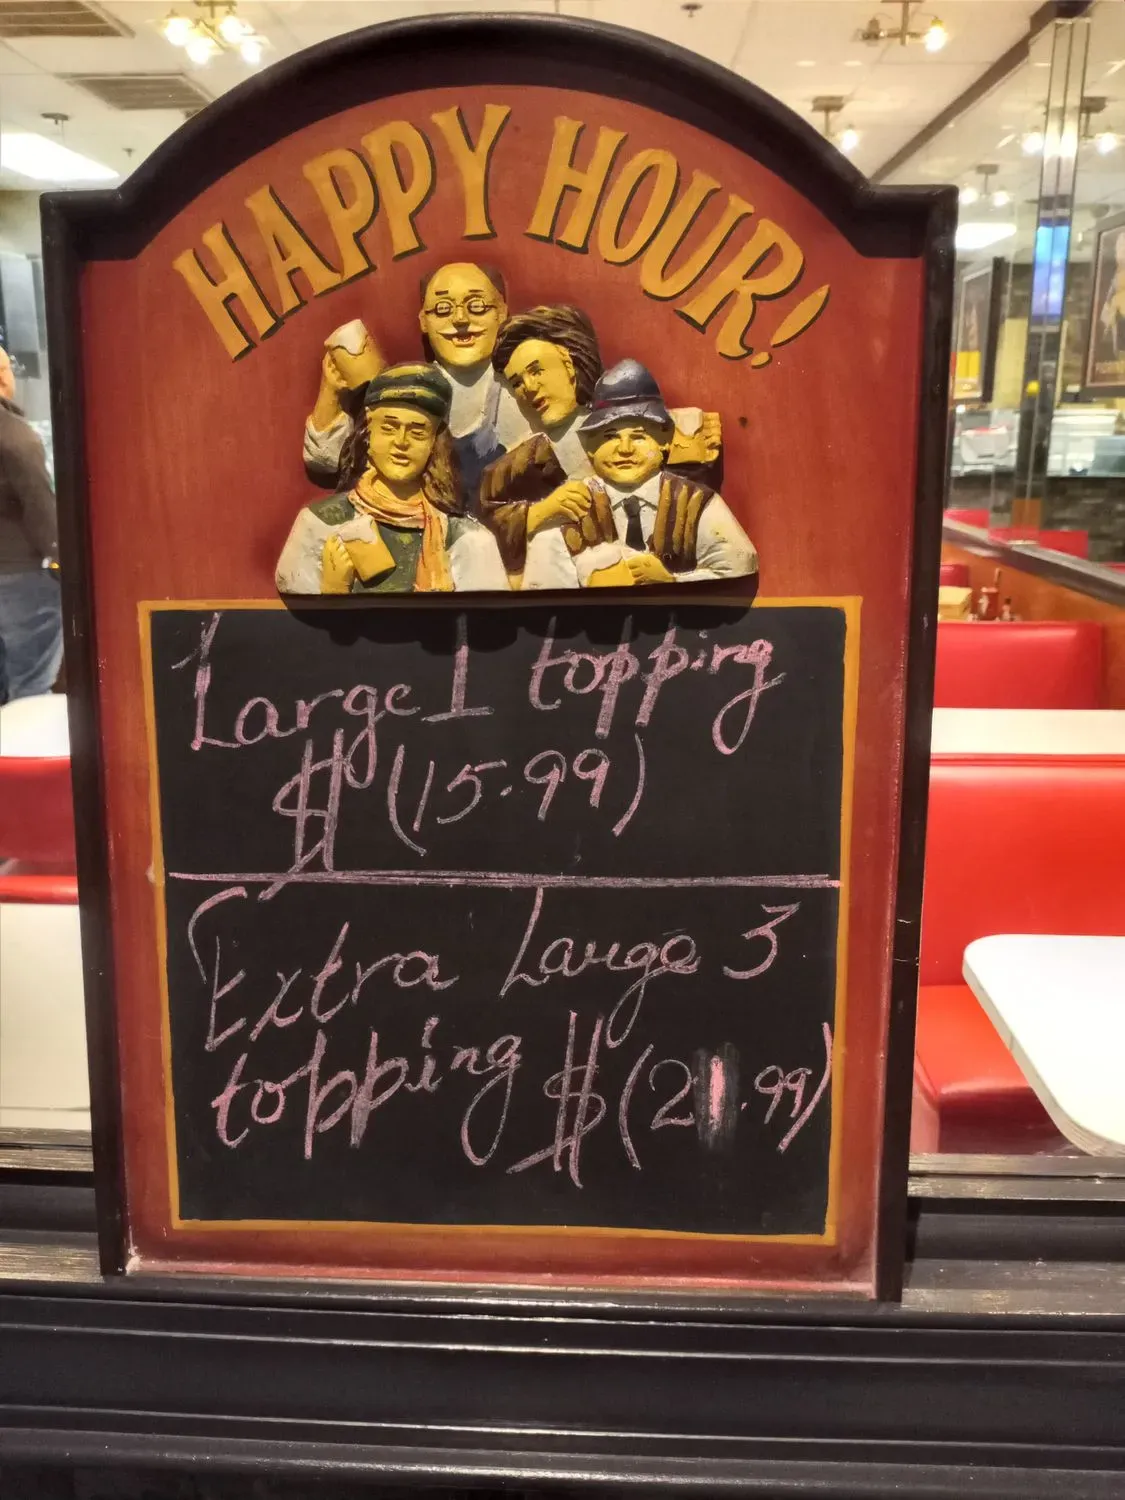 HAPPY HOUR!
Large 1 topping
$ (15.99)
Extra Large 3
topping $ (21.99)